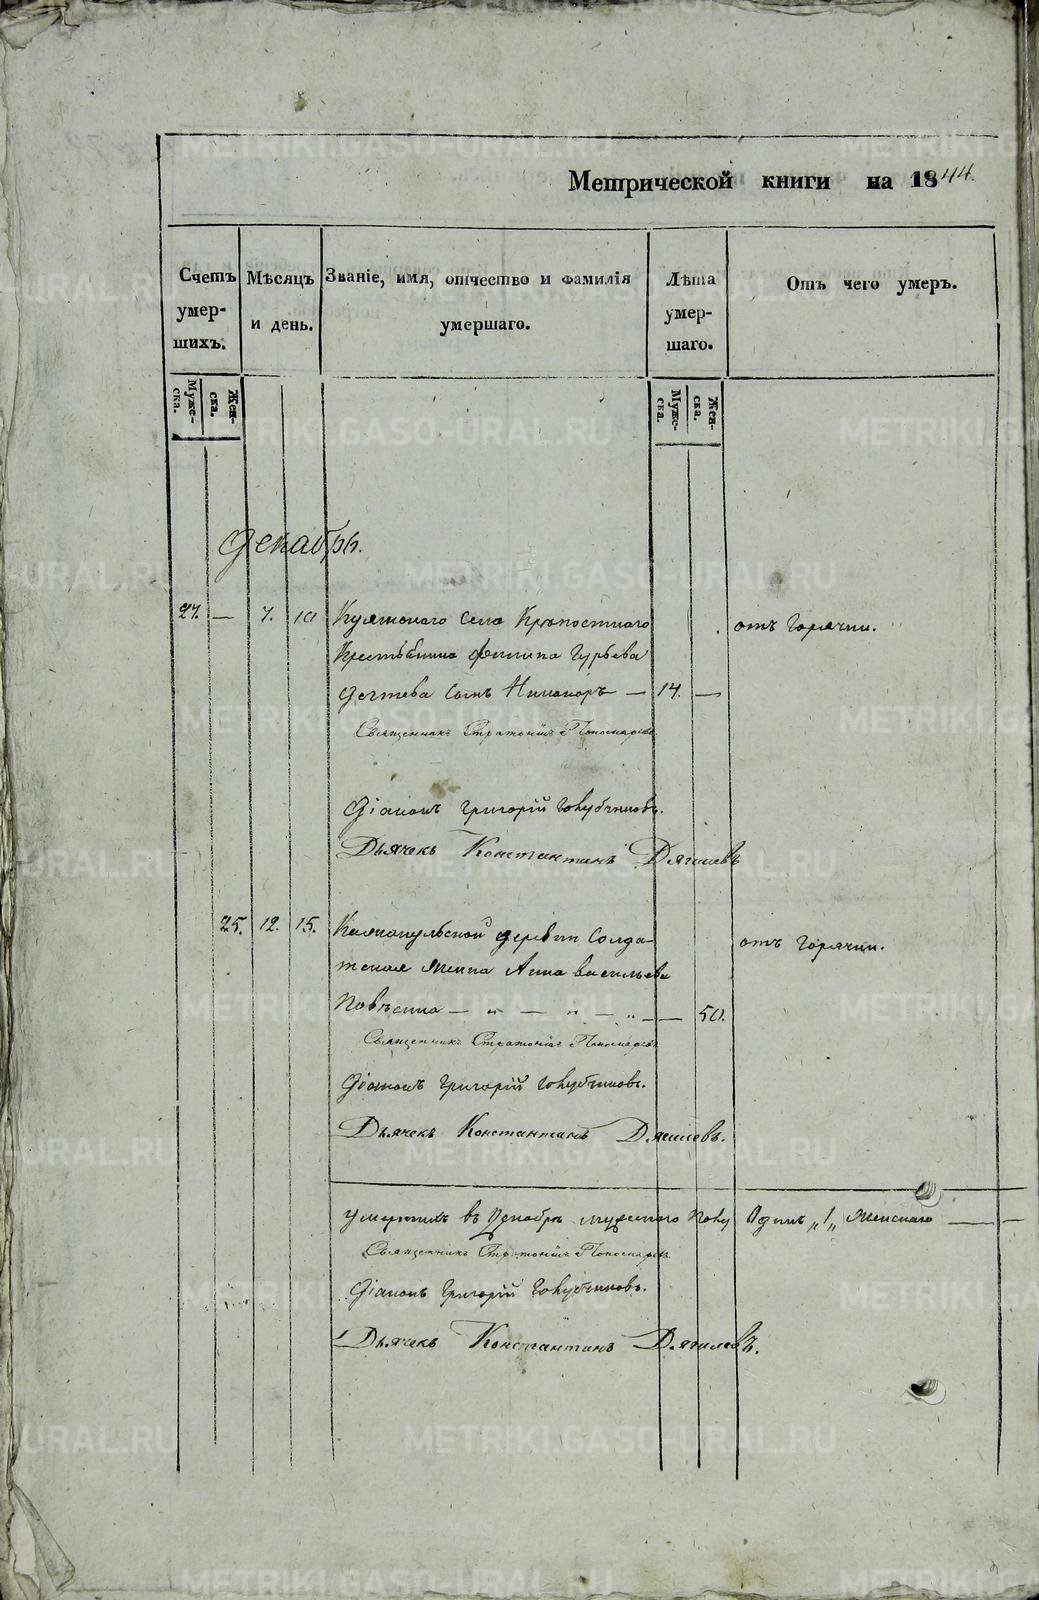 Метрической книги на 1844.
Счетъ умер-шихъ.
Мѣсяцъ и день.
Званіе, имя, отчество и фамилія умершаго.
Лѣта умер-шаго.
Отъ чего умеръ.
Муже-ска.
Жен-ска.
Муже-ска.
Жен-ска.
Декабрь.
27. — 7. 10 Куяшскаго Села Крѣпостнаго отъ Горячки.
Крестьянина Филипа Гурьева
Дегтева Сынъ Никаноръ — 14. —
Священникъ Стратоникъ Пономаревъ
Діаконъ Григорій Голубчиковъ.
Дьячекъ Константинъ Дягилевъ
25. 12. 15. деревни Солда- отъ Горячки.
тская Жинка Анна Васильева
— „ — „ — „ — — 50.
Священникъ Стратоникъ Пономаревъ
Діаконъ Григорій Голубчиковъ.
Дьячекъ Константинъ Дягилевъ.
Умершихъ въ Декабрѣ мужескаго полу Одинъ „1„ Женскаго —
Священникъ Стратоникъ Пономаревъ
Діаконъ Григорій Голубчиковъ.
Дьячекъ Константинъ Дягилевъ.
METRIKI.GASO-URAL.RU